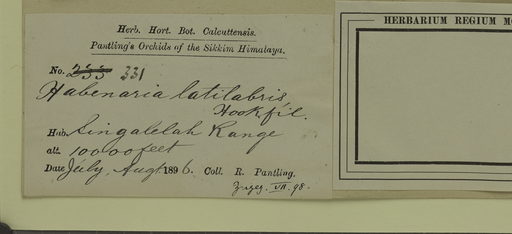 Herb. Hort. Bot. Calcuttensis.
Pantling's Orchids of the Sikkim Himalaya.
No. 255 331
Habenaria latilabris
Hook fil.
Hab. Singalelah Range
alt. 10000 feet
Date July, Augt 1896. Coll. R. Pantling.
VII. 98.
HERBARIUM REGIUM